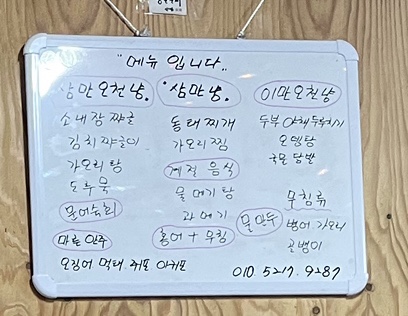 "메뉴 입니다"
삼만 오천냥.
소내장 짜글
김치 짜글이
가오리탕
도루묵
물어숙회
마른안주
오징어 먹태 쥐포 아귀포
"삼만냥.
동태찌개
가오리찜
계절 음식
물메기탕
과메기
홍어 + 무침
이만오천냥
두부 야채두루치기
오뎅탕
국물 닭발
물만두
무침류
병어. 가오리
골뱅이
010. 5217. 9287